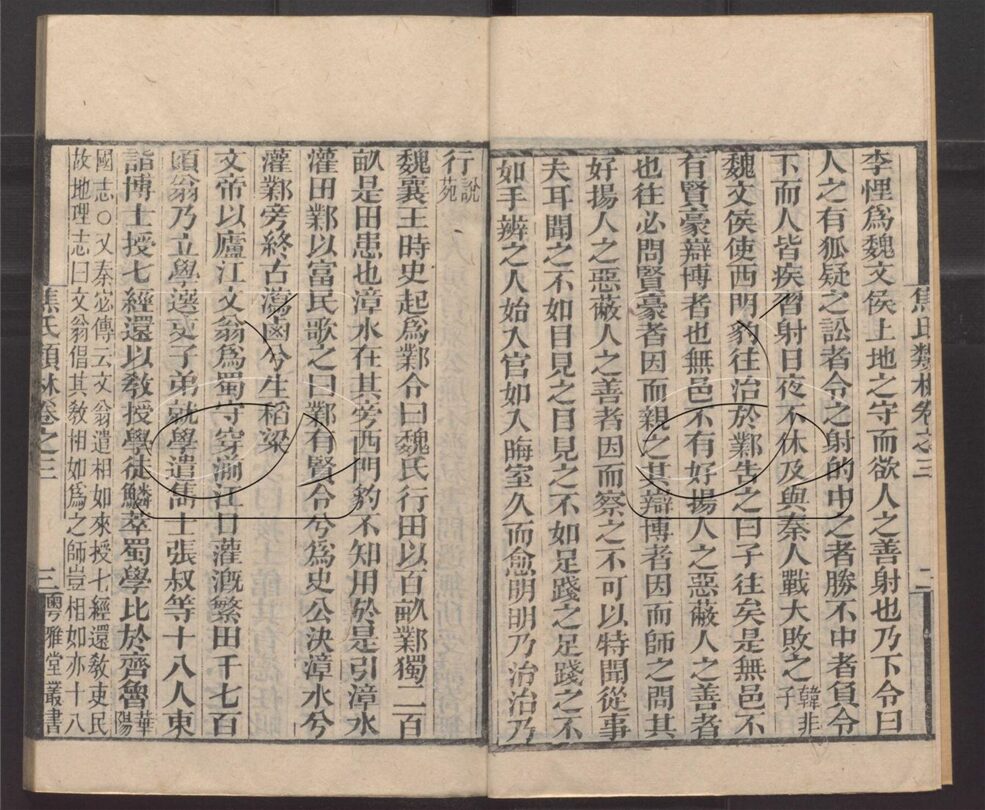 李悝爲魏文侯上地之守而欲人之善射也乃下令曰
人之有狐疑之訟者令之射的中之者勝不中者負令
下而人皆疾習射日夜不休及與秦人戰大敗之韓非子
魏文侯使西門豹往治於鄴告之曰子往矣是無邑不
有賢豪辯博者也無邑不有好揚人之惡蔽人之善者
也往必問賢豪者因而親之其辯博者因而師之問其
好揚人之惡蔽人之善者因而察之不可以特聞從事
夫耳聞之不如目見之目見之不如足踐之足踐之不
如手辨之人始入官如入晦室久而愈明明乃治治乃
焦氏類林卷之三 二
行說苑
魏襄王時史起爲鄴令曰魏氏行田以百畝鄴獨二百
畝是田患也漳水在其旁西門豹不知用於是引漳水
灌田鄴以富民歌之曰鄴有賢令兮爲史公決漳水兮
灌鄴旁終古潟鹵兮生稻粱
文帝以廬江文翁爲蜀守穿湔江口灌漑繁田千七百
頃翁乃立學選吏子弟就學遣雋士張叔等十八人東
詣博士授七經還以敎授學徒鱗萃蜀學比於齊魯華陽
國志○又秦宓傳云文翁遣相如東授七經還敎吏民
故地理志曰文翁倡其敎相如爲之師豈相如亦十八
焦氏類林卷之三 三 粵雅堂叢書